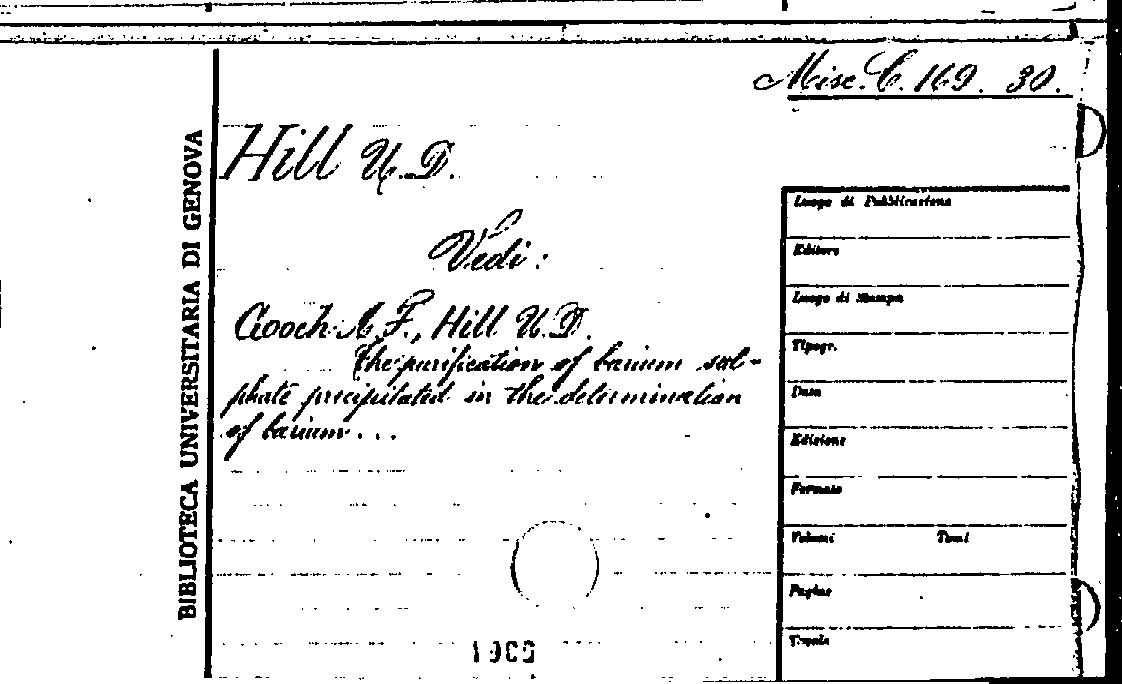 Misc. C. 169. 30.
BIBLIOTECA UNIVERSITARIA DI GENOVA
Hill U. D.
Vedi:
Gooch A. F., Hill U. D.
The purification of barium sul-
phate precipitated in the determination
of barium...
Luogo di Pubblicazione
Editore
Luogo di Stampa
Tipogr.
Data
Edizione
Formato
Volumi Tomi
Pagine
Tavole